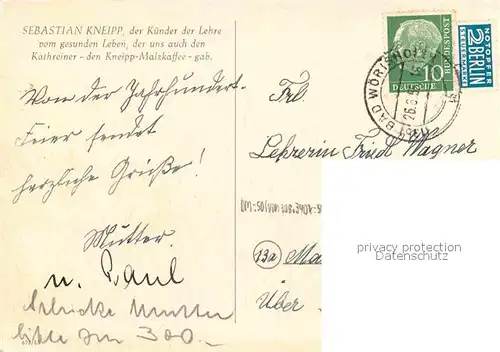 SEBASTIAN KNEIPP, der Künder der Lehre
vom gesunden Leben, der uns auch den
Kathreiner - den Kneipp-Malzkaffee - gab.
Von der Jahrhundert-
Feier sendet
herzliche Grüße!
Mutter.
u. Paul
bitte um 300.-
NOTOPFER
2
BERLIN
STEUERMARKE
DEUTSCHE BUNDESPOST
10
BAD WÖRISHOFEN
Frl.
Lehrerin Friedl Wagner
privacy protection
Datenschutz
(13a) Ma
Über